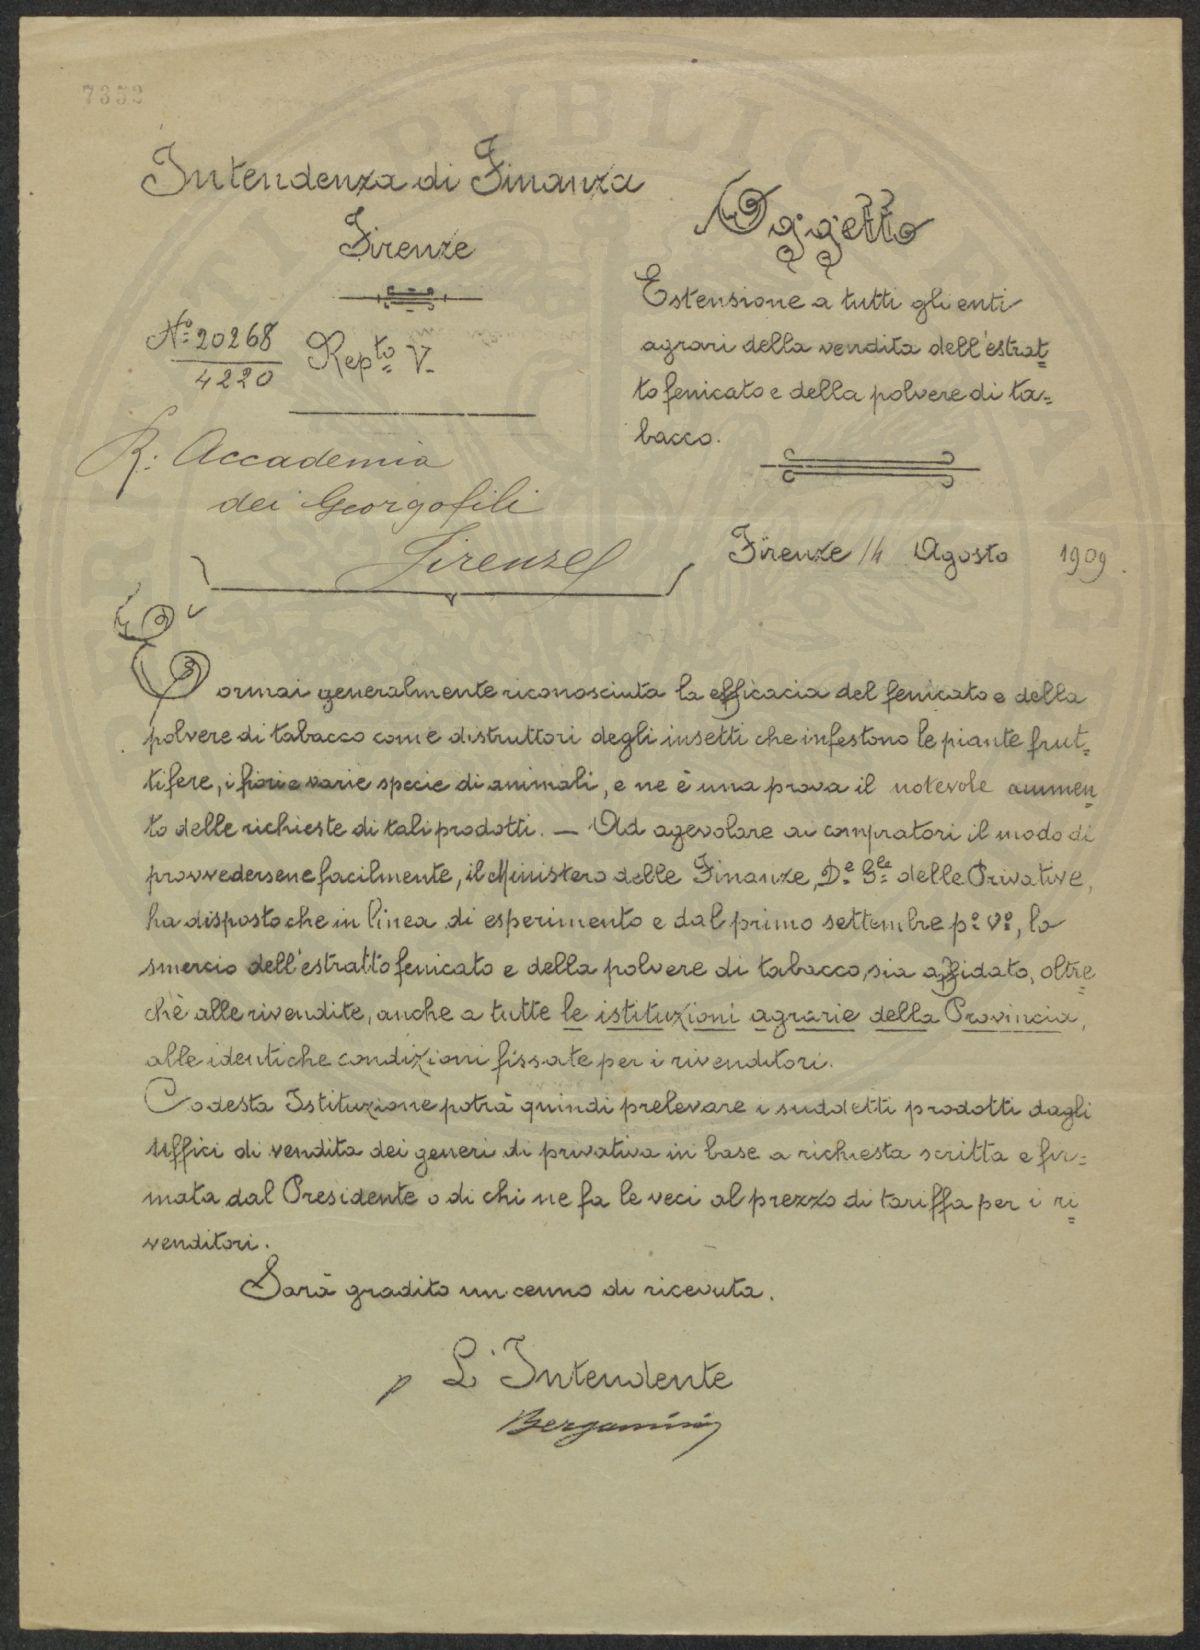 7352
Intendenza di Finanza
Firenze
N.º 20268
4220
Rep.to V.
R: Accademia
dei Georgofili
Firenze
Oggetto
Estensione a tutti gli enti
agrari della vendita dell'estrat=
to fenicato e della polvere di ta=
bacco.
Firenze 14 Agosto 1909.
È ormai generalmente riconosciuta la efficacia del fenicato e della
polvere di tabacco come distruttori degli insetti che infestono le piante frut=
tifere, i fiori e varie specie di animali, e ne è una prova il notevole aumen=
to delle richieste di tali prodotti. — Ad agevolare ai compratori il modo di
provvedersene facilmente, il Ministero delle Finanze, D.e G.le delle Privative,
ha disposto che in linea di esperimento e dal primo settembre p.º v.º, lo
smercio dell'estratto fenicato e della polvere di tabacco, sia affidato, oltre=
chè alle rivendite, anche a tutte le istituzioni agrarie della Provincia,
alle identiche condizioni fissate per i rivenditori.
Codesta Istituzione potrà quindi prelevare i suddetti prodotti dagli
Uffici di vendita dei generi di privativa in base a richiesta scritta e fir=
mata dal Presidente o di chi ne fa le veci al prezzo di tariffa per i ri=
venditori.
Sarà gradito un cenno di ricevuta.
p L'Intendente
Bergamini